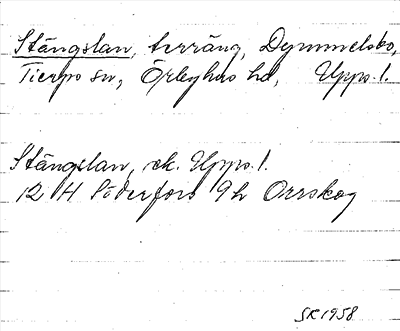 Stängslan, terräng, Dymmelsbo,
Tierps sn, Örbyhus hd, Upps. l.
Stängslan, sk. Upps. l.
12 H Söderfors 9h Orrskog
SK 1958